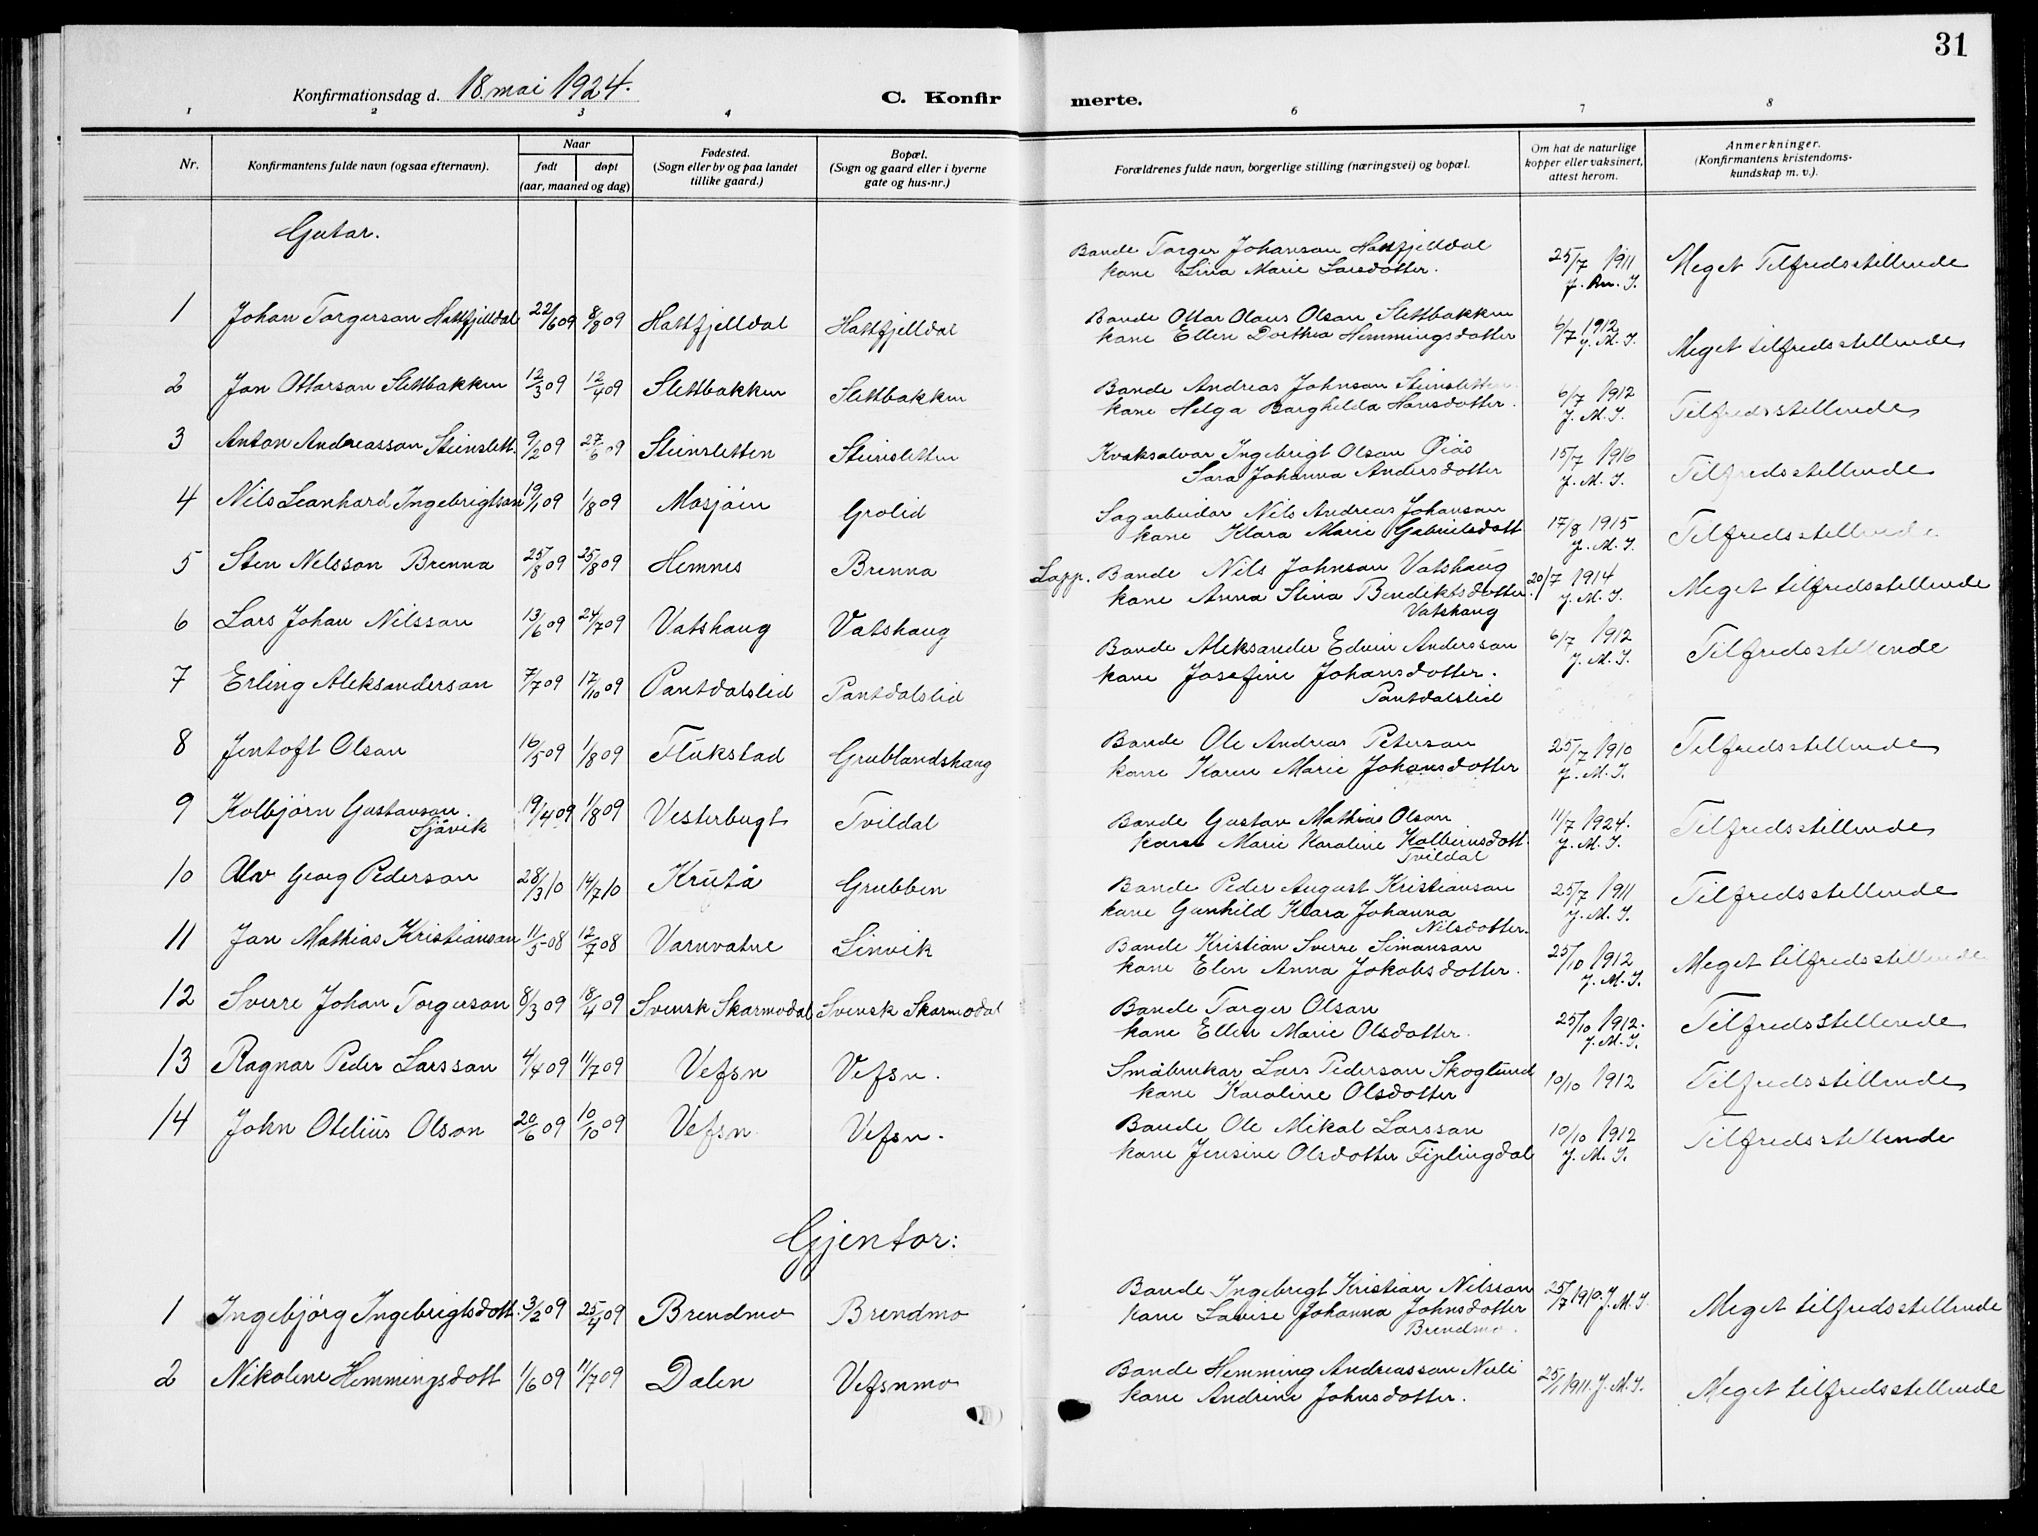 31
Konfirmationsdag d. 18. mai 1924.
C. Konfir
merte.
1 2 3 4 6 7 8
Nr.
Konfirmantens fulde navn (ogsaa efternavn).
Naar
født
døpt
(aar, maaned og dag)
Fødested.
(Sogn eller by og paa landet
tillike gaard.)
Bopæl.
(Sogn og gaard eller i byerne
gate og hus-nr.)
Forældrenes fulde navn, borgerlige stilling (næringsvei) og bopæl.
Om hat de naturlige
kopper eller vaksinert,
attest herom.
Anmerkninger.
(Konfirmantens kristendoms-
kundskap m. v.).
Gutar.
Bonde Torger Johanson Hattfjelldal 25/7 1911 Meget Tilfredsstillende
kone Lina Marie Larsdotter.
1 Johan Torgerson Hattfjelldal 22/6 09 8/8 09 Hattfjelldal Hattfjelldal
Bonde Ottar Olaus Olson Slettbakken 6/7 1912 J. M. S. Meget tilfredsstillende
kone Ellen Dorthea Hemmingsdotter
2 Jon Ottarson Slettbakken 12/3 09 12/4 09 Slettbakken Slettbakken
Bonde Andreas Johnson Steinsletten 6/7 1912 J. M. S. Tilfredsstillende
kone Helga Borghilda Hansdotter.
3 Anton Andreasson Steinslett. 9/2 09 27/6 09 Steinsletten Steinsletten
Kvaksalvar Ingebrigt Olson 15/7 1916 J. M. S. Tilfredsstillende
Sara Johanna Andersdotter
4 Nils Leonhard Ingebrigtson 19/1 09 1/8 09 Mosjøin Grolid
Sagarbeidar Nils Andreas Johanson 17/8 1915 J. M. S. Tilfredsstillende
kone Klara Marie Gabrielsdott
5 Sten Nelsson Brenna 25/8 09 25/8 09 Hemnes Brenna
Lapp. Bonde Nils Johnson Vatshaug 20/7 1914 J. M. S. Meget tilfredsstillende
kone Anna Stina Bendiktsdotter.
Vatshaug
6 Lars Johan Nilsson 13/6 09 24/7 09 Vatshaug Vatshaug
Bonde Aleksander Edvin Andersson 6/7 1912 J. M. S. Tilfredsstillende
kone Josefine Johansdotter.
Pantdalslid
7 Erling Aleksanderson 7/7 09 17/10 09 Pantdalslid Pantdalslid
8 Jentoft Olson 16/5 09 1/8 09 Flakstad Grublandshaug
Bonde Ole Andreas Peterson 25/7 1910 J. M. S. Tilfredsstillende
kone Karen Marie Johansdotter
9 Kolbjørn Gustavson. Sjåvik 19/4 09 1/8 09 Vesterbugt Tvildal
Bonde Gustav Mathias Olson 11/7 1924. J. M. S. Tilfredsstillende
kone Marie Karoline Kolbeinsdott.
Tvildal
10 Alv Georg Pederson 28/3 10 14/7 10 Krutå Grubben
Bonde Peder August Kristianson 25/7 1911 J. M. S. Tilfredsstillende
kone Gunhild Klara Johanna
Nilsdotter.
11 Jon Mathias Kristianson 11/5 08 12/7 08 Varnvatne Linvik
Bonde Kristian Sverre Simonson 25/10 1912 J. M. S. Meget tilfredsstillende
kone Elen Anna Jokobsdotter.
12 Sverre Johan Torgerson 8/3 09 18/4 09 Svensk Skarmodal Svensk Skarmodal
Bonde Torger Olson 25/10 1912. J. M. S. Tilfredsstillende
kone Ellen Marie Olsdotter.
13 Ragnar Peder Larsson 4/4 09 11/7 09 Vefsn Vefsn.
Småbrukar Lars Pederson Skoglund 10/10 1912 Tilfredsstillende
kone Karoline Olsdotter
14 John Otelius Olson 20/6 09 10/10 09 Vefsn Vefsn.
Bonde Ole Mikal Larsson 10/10 1912 J. M. S. Tilfredsstillende
kone Jensine Olsdotter Fiplingdal
Gjentor:
Bonde Ingebrigt Kristian Nilsson 25/7 1910. J. M. S. Meget tilfredsstillende
1 Ingebjørg Ingebrigtsdott. 3/2 09 25/4 09 Brendmo Brendmo
kone Lovise Johanna Johnsdotter
Brendmo.
2 Nikoline Hemmingsdott 1/6 09 11/7 09 Dalen Vefsnmo
Bonde Hemming Andreasson 1911. J. M. S. Meget tilfredsstillende
kone Andrine Johnsdotter.